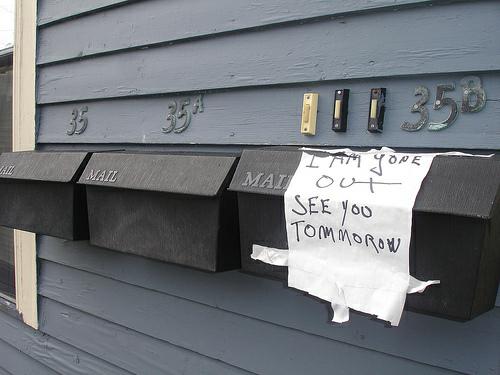 35
35A
35B
MAIL
MAIL
MAIL
I AM GONE
OUT
SEE YOU
TOMMOROW